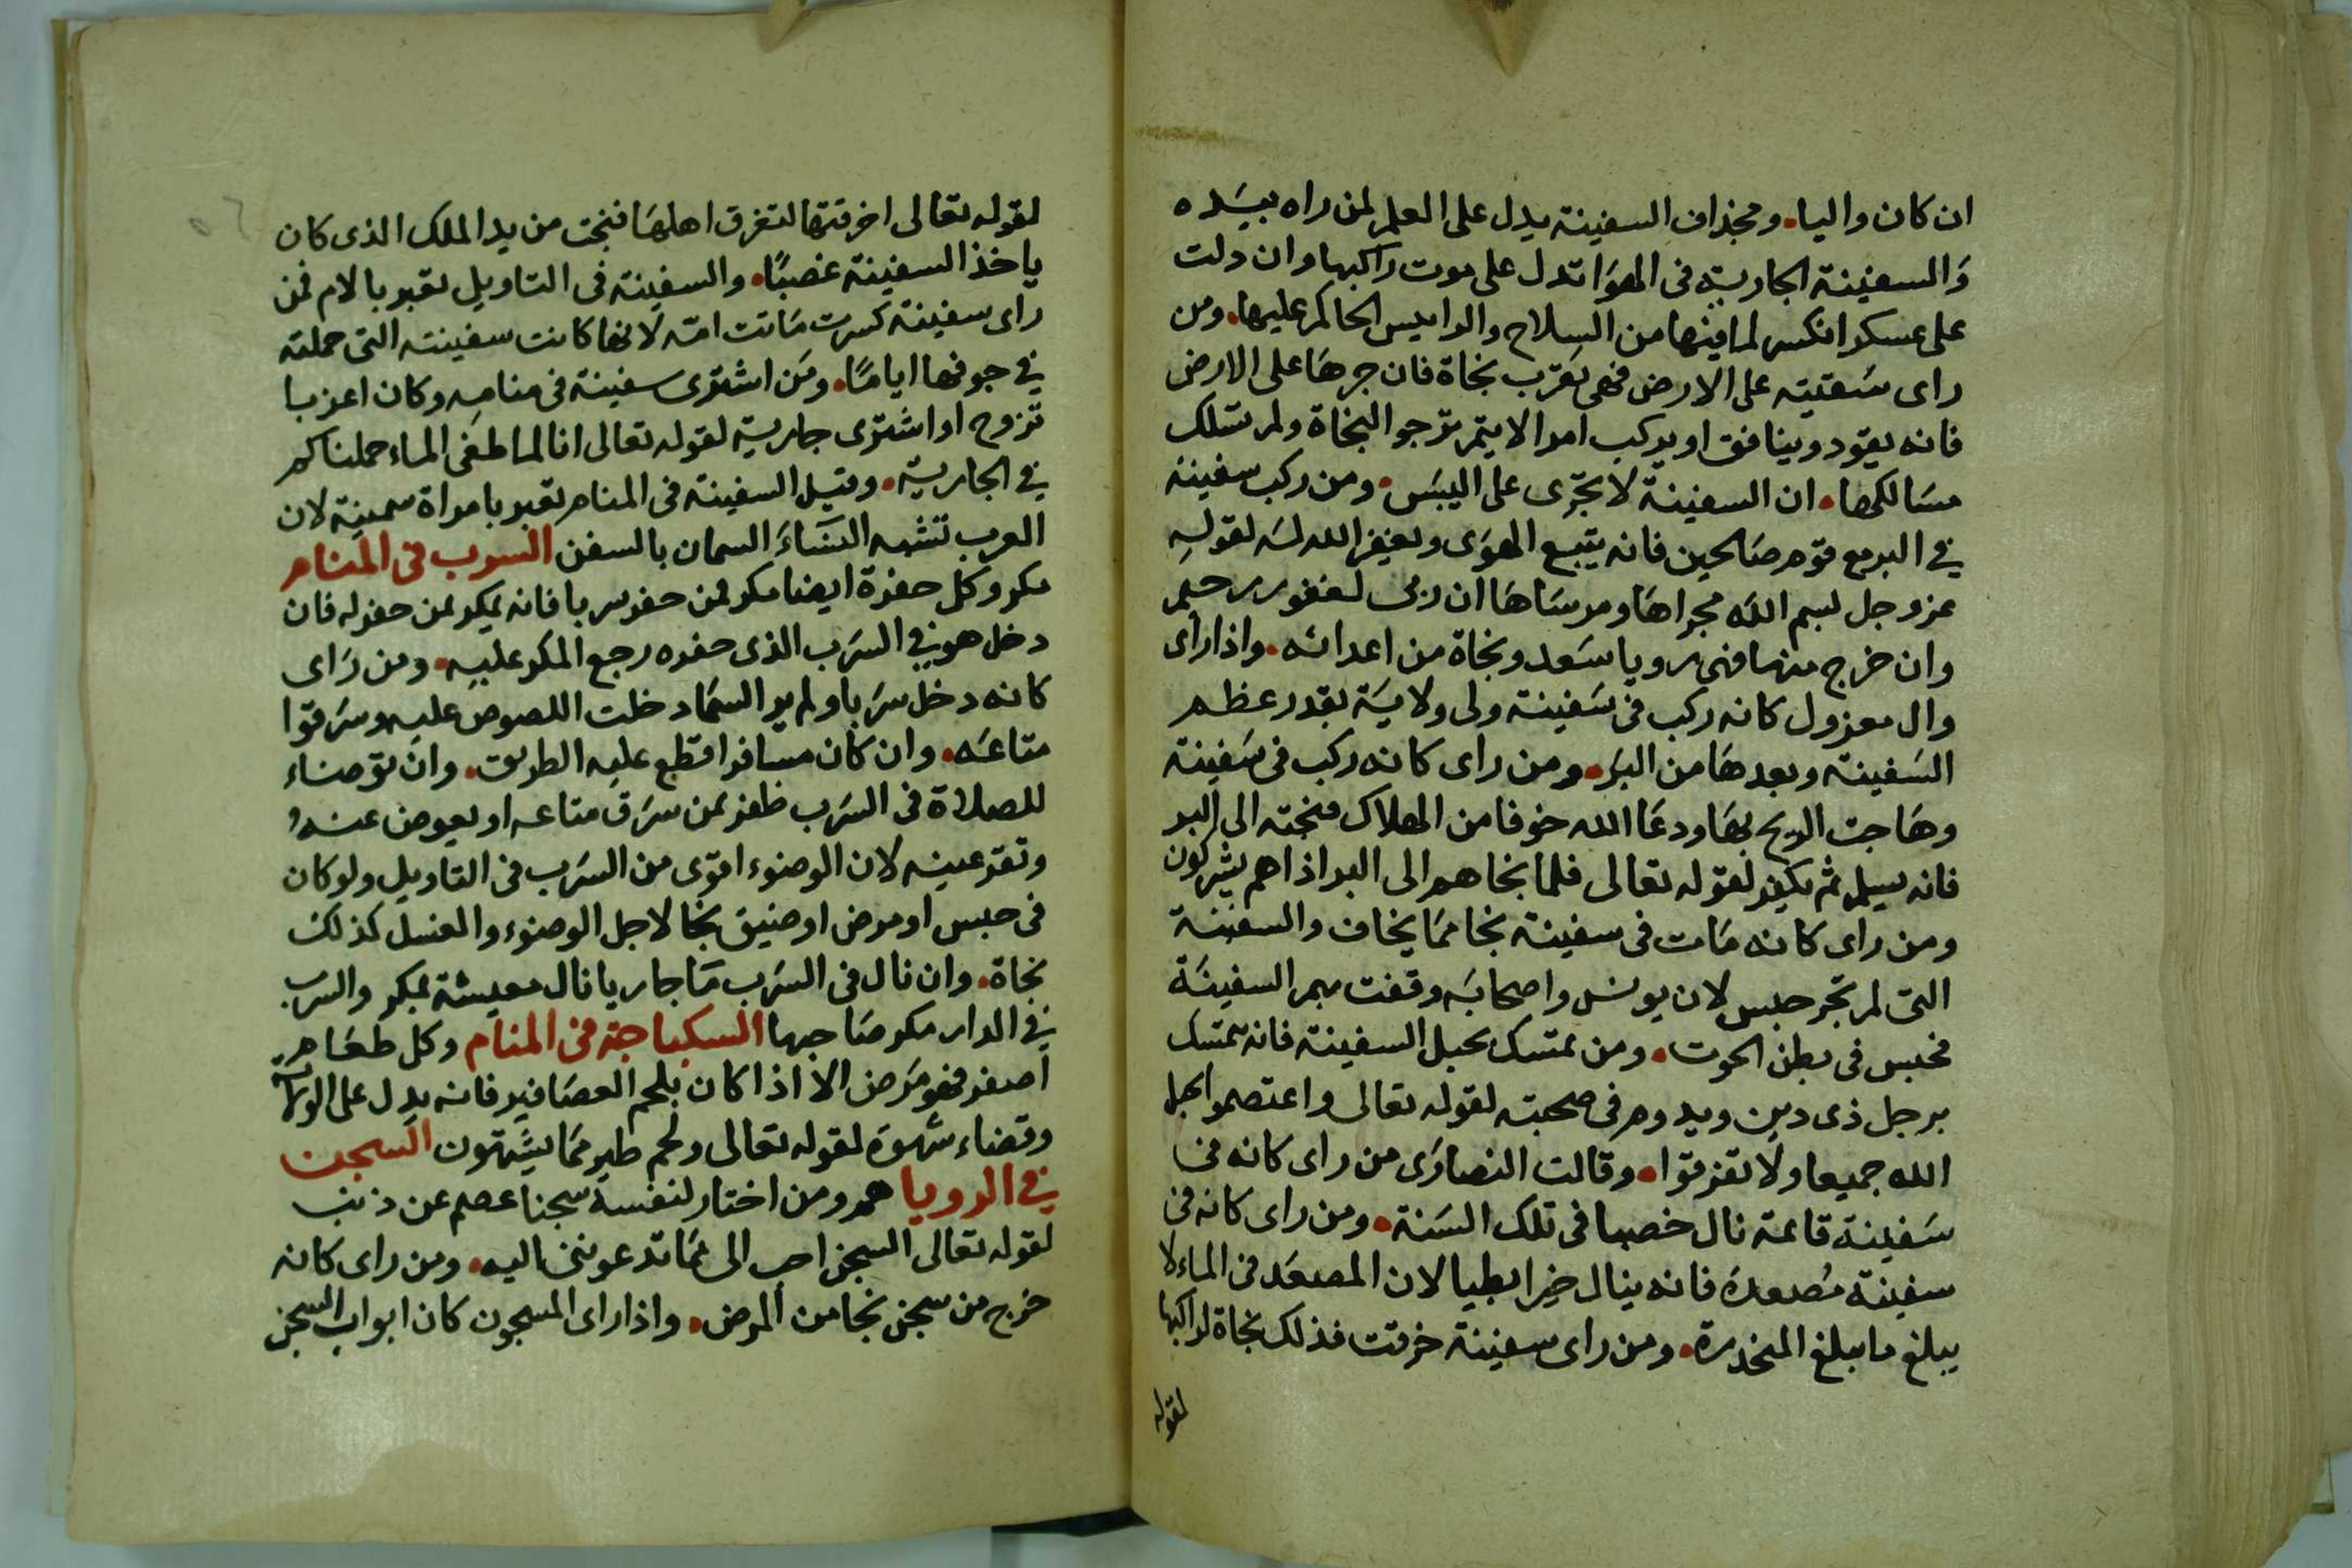 ان كان واليا. ومجذاف السفينة يدل على العلم لمن راه بيده
والسفينة الجارية فى الهوا تدل على موت راكبها وان دلت
على عسكر انكسر لما فيها من السلاح والراييس الحاكم عليها. ومن
راى سفينته على الارض فهى تقرب نجاة فان جرها على الارض
فانه يقود وينافق او يركب امرا لا يتم ترجو النجاة ولم تسلك
مسالكها. ان السفينة لا تجرى على اليبس. ومن ركب سفينة
في البر مع قوم صالحين فانه يتبع الهوى ويغفر الله له لقوله
عزوجل بسم الله مجراها ومرساها ان ربى لغفور رحيم
وان خرج منها فهى رويا سعد ونجاة من اعدائه. واذا راى
وال معزول كانه ركب فى سفينة ولى ولاية بقدر عظم
السفينة وبعدها من البر. ومن راى كانه ركب فى سفينة
وهاجت الريح بها ودعا الله خوفا من الهلاك فنجته الى البر
فانه يسلم ثم يكفر لقوله تعالى فلما نجاهم الى البر اذا هم يشركون
ومن راى كانه مات فى سفينة نجا مما يخاف والسفينة
التى لم تجر حبس لان يونس واصحابه وقفت بهم السفينة
فحبس فى بطن الحوت. ومن تمسك بحبل السفينة فانه تمسك
برجل ذى دين ويدوم فى صحبته لقوله تعالى واعتصموا بحبل
الله جميعا ولا تفرقوا. وقالت النصارى من راى كانه فى
سفينة قائمة نال خصبا فى تلك السنة. ومن راى كانه فى
سفينة مصعدة فانه ينال خيرا بطيا لان المصعد فى الماء لا
يبلغ ما يبلغ المنحدرة. ومن راى سفينة خرقت فذلك نجاة لراكبها
لقوله
لقوله تعالى اخرقتها لتغرق اهلها فنجت من يد الملك الذى كان
ياخذ السفينة غصبًا. والسفينة فى التاويل تعبر بالام فمن
راى سفينة كسرت ماتت امه لانها كانت سفينته التى حملته
في جوفها ايامًا. ومن اشترى سفينة فى منامه وكان اعزبا
تزوج او اشترى جارية لقوله تعالى انا لما طغى الماء حملناكم
في الجارية. وقيل السفينة فى المنام تعبر بامراة سمينة لان
العرب تشبه النساء السمان بالسفن السرب فى المنام
مكر وكل حفرة ايضا مكر فمن حفر سربا فانه يمكر لمن حفر له فان
دخل هو في السرب الذى حفره رجع المكر عليه. ومن راى
كانه دخل سربا ولم ير السما دخلت اللصوص عليه وسرقوا
متاعه. وان كان مسافرا قطع عليه الطريق. وان توضاء
للصلاة فى السرب ظفر بمن سرق متاعه او يعوض عنه
وتقر عينه لان الوضوء اقوى من السرب فى التاويل ولو كان
فى حبس او مرض او ضيق نجا لاجل الوضوء والغسل كذلك
نجاة. وان نال فى السرب ما جاريا نال معيشة بمكر والسرب
في الدار مكر صاحبها السكباجة فى المنام وكل طعام
اصفر فهو مرض الا اذا كان بلحم العصافير فانه يدل على
وقضاء شهوة لقوله تعالى ولحم طير مما يشتهون السجن
في الرويا هم ومن اختار لنفسه سجنا عصم عن ذنب
لقوله تعالى السجن احب الى مما تدعوننى اليه. ومن راى كانه
خرج من سجن نجا من المرض. واذا راى المسجون كان ابواب السجن